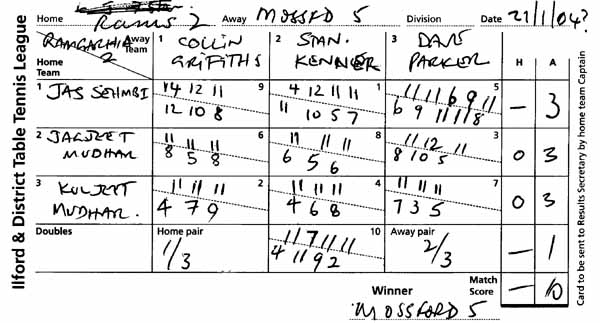 Ilford & District Table Tennis League
Home Rams 2 Away MOSSFD 5 Division Date 21/1/04?
RAMGARHIA 2 Away Team Home Team
1 COLLIN GRIFITHS
2 STAN. KENNER
3 DAVE PARKER
H A
1 JAS SEHMBI
14 12 11 9
12 10 8
4 12 11 11 1
11 10 5 7
11 11 11 6 9 11 5
6 9 11 11 8
— 3
2 JALJEET MUDHAR
11 11 11 6
8 5 8
11 11 11 8
6 5 6
11 12 11 3
8 10 5
0 3
3 KULJEET MUDHAR.
11 11 11 2
4 7 9
11 11 11 4
4 6 8
11 11 11 7
7 3 5
0 3
Doubles
Home pair 1/3
11 7 11 11 10
4 11 9 2
Away pair 2/3
— 1
Winner MOSSFORD 5
Match Score — 10
Card to be sent to Results Secretary by home team Captain